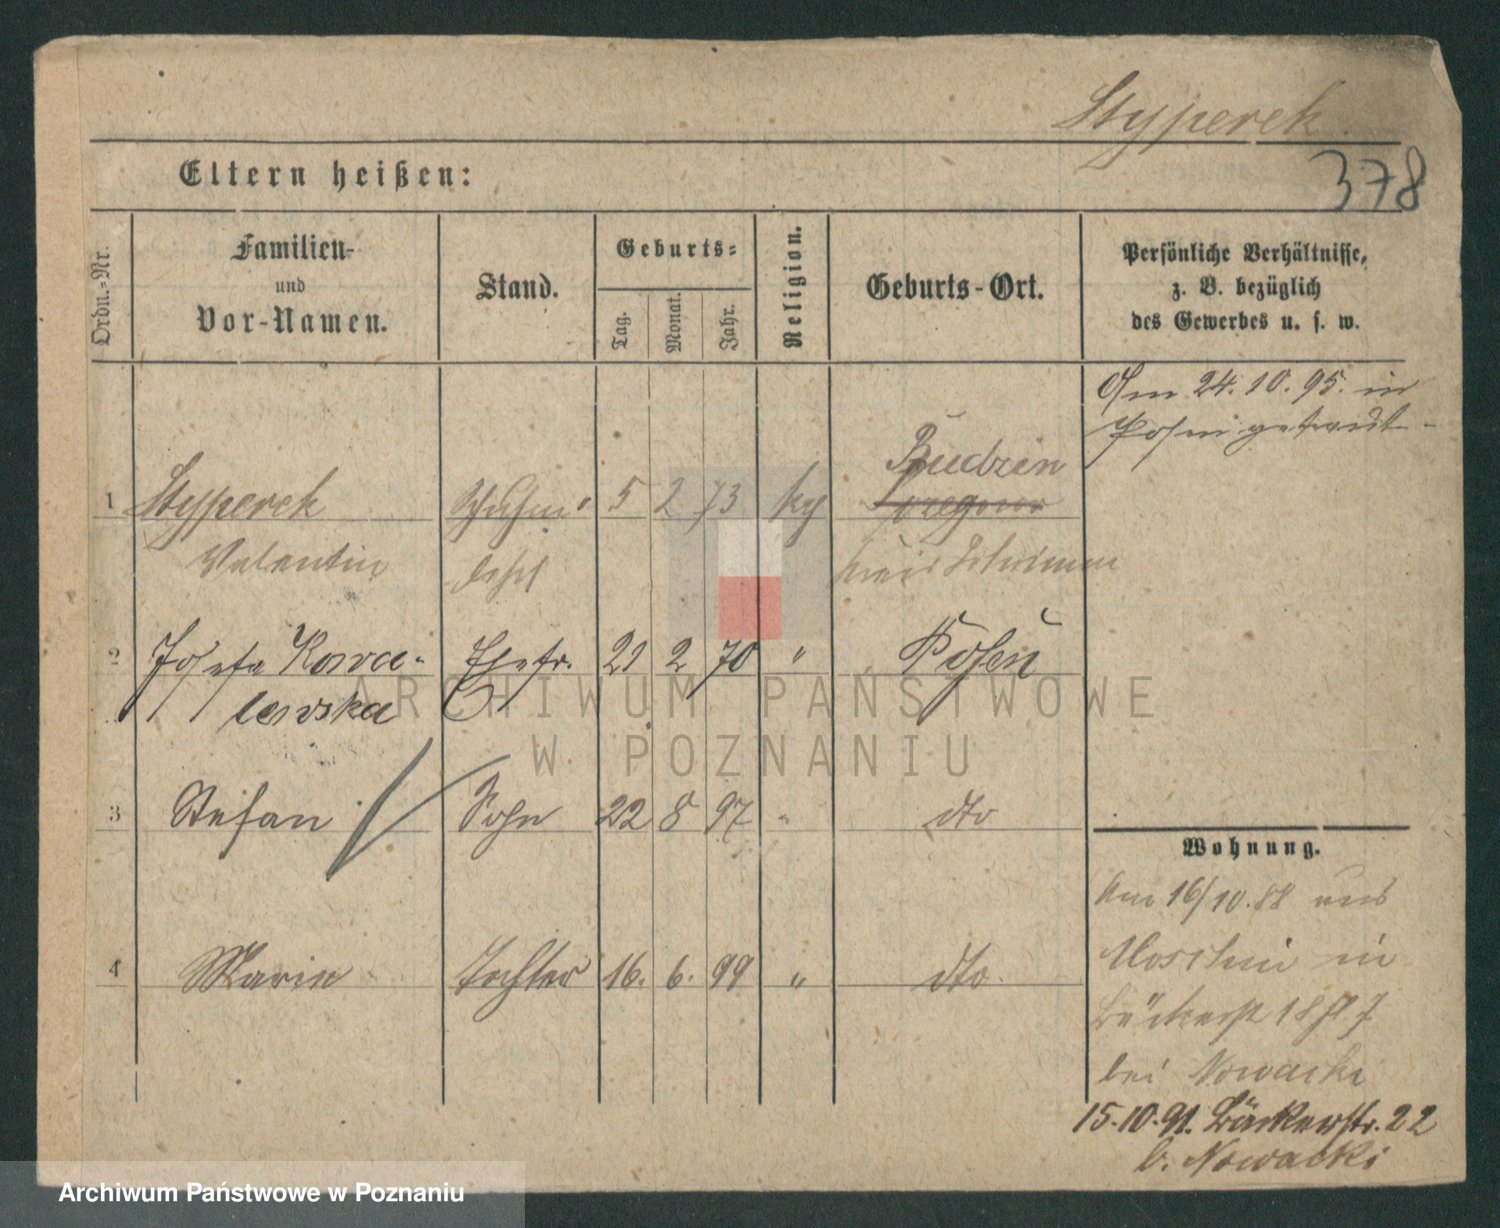 Styperek
378
Eltern heißen:
Ordn.-Nr.
Familien-
und
Vor-Namen.
Stand.
Geburts-
Tag.
Monat.
Jahr.
Religion.
Geburts-Ort.
Persönliche Verhältnisse,
z. B. bezüglich
des Gewerbes u. s. w.
Am 24.10.95. in
Posen getraut
Budzin
1 Styperek 5 2 73
Valentin Kreis Schrimm
2 Josefa Kowa- Ehefr. 21 2 70 " Posen
lewska
3 Stefan Sohn 22 8 97 " dto
4 Marie Tochter 16. 6. 99 " dto.
Wohnung.
Am 16/10.88 aus
Moschin in
bei Nowacki
15.10.91. Bäckerstr. 22
b. Nowacki
ARCHIWUM PAŃSTWOWE
W POZNANIU
Archiwum Państwowe w Poznaniu